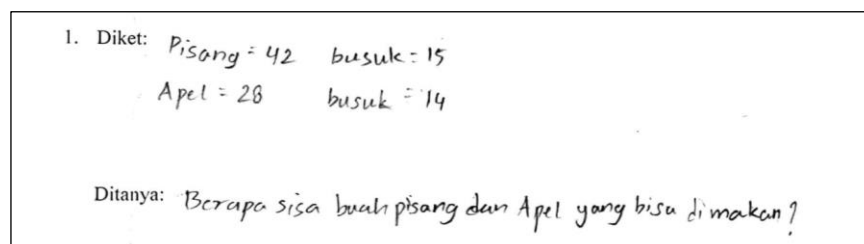 1. Diket: Pisang = 42 busuk = 15
Apel = 28 busuk = 14
Ditanya: Berapa sisa buah pisang dan Apel yang bisa dimakan?